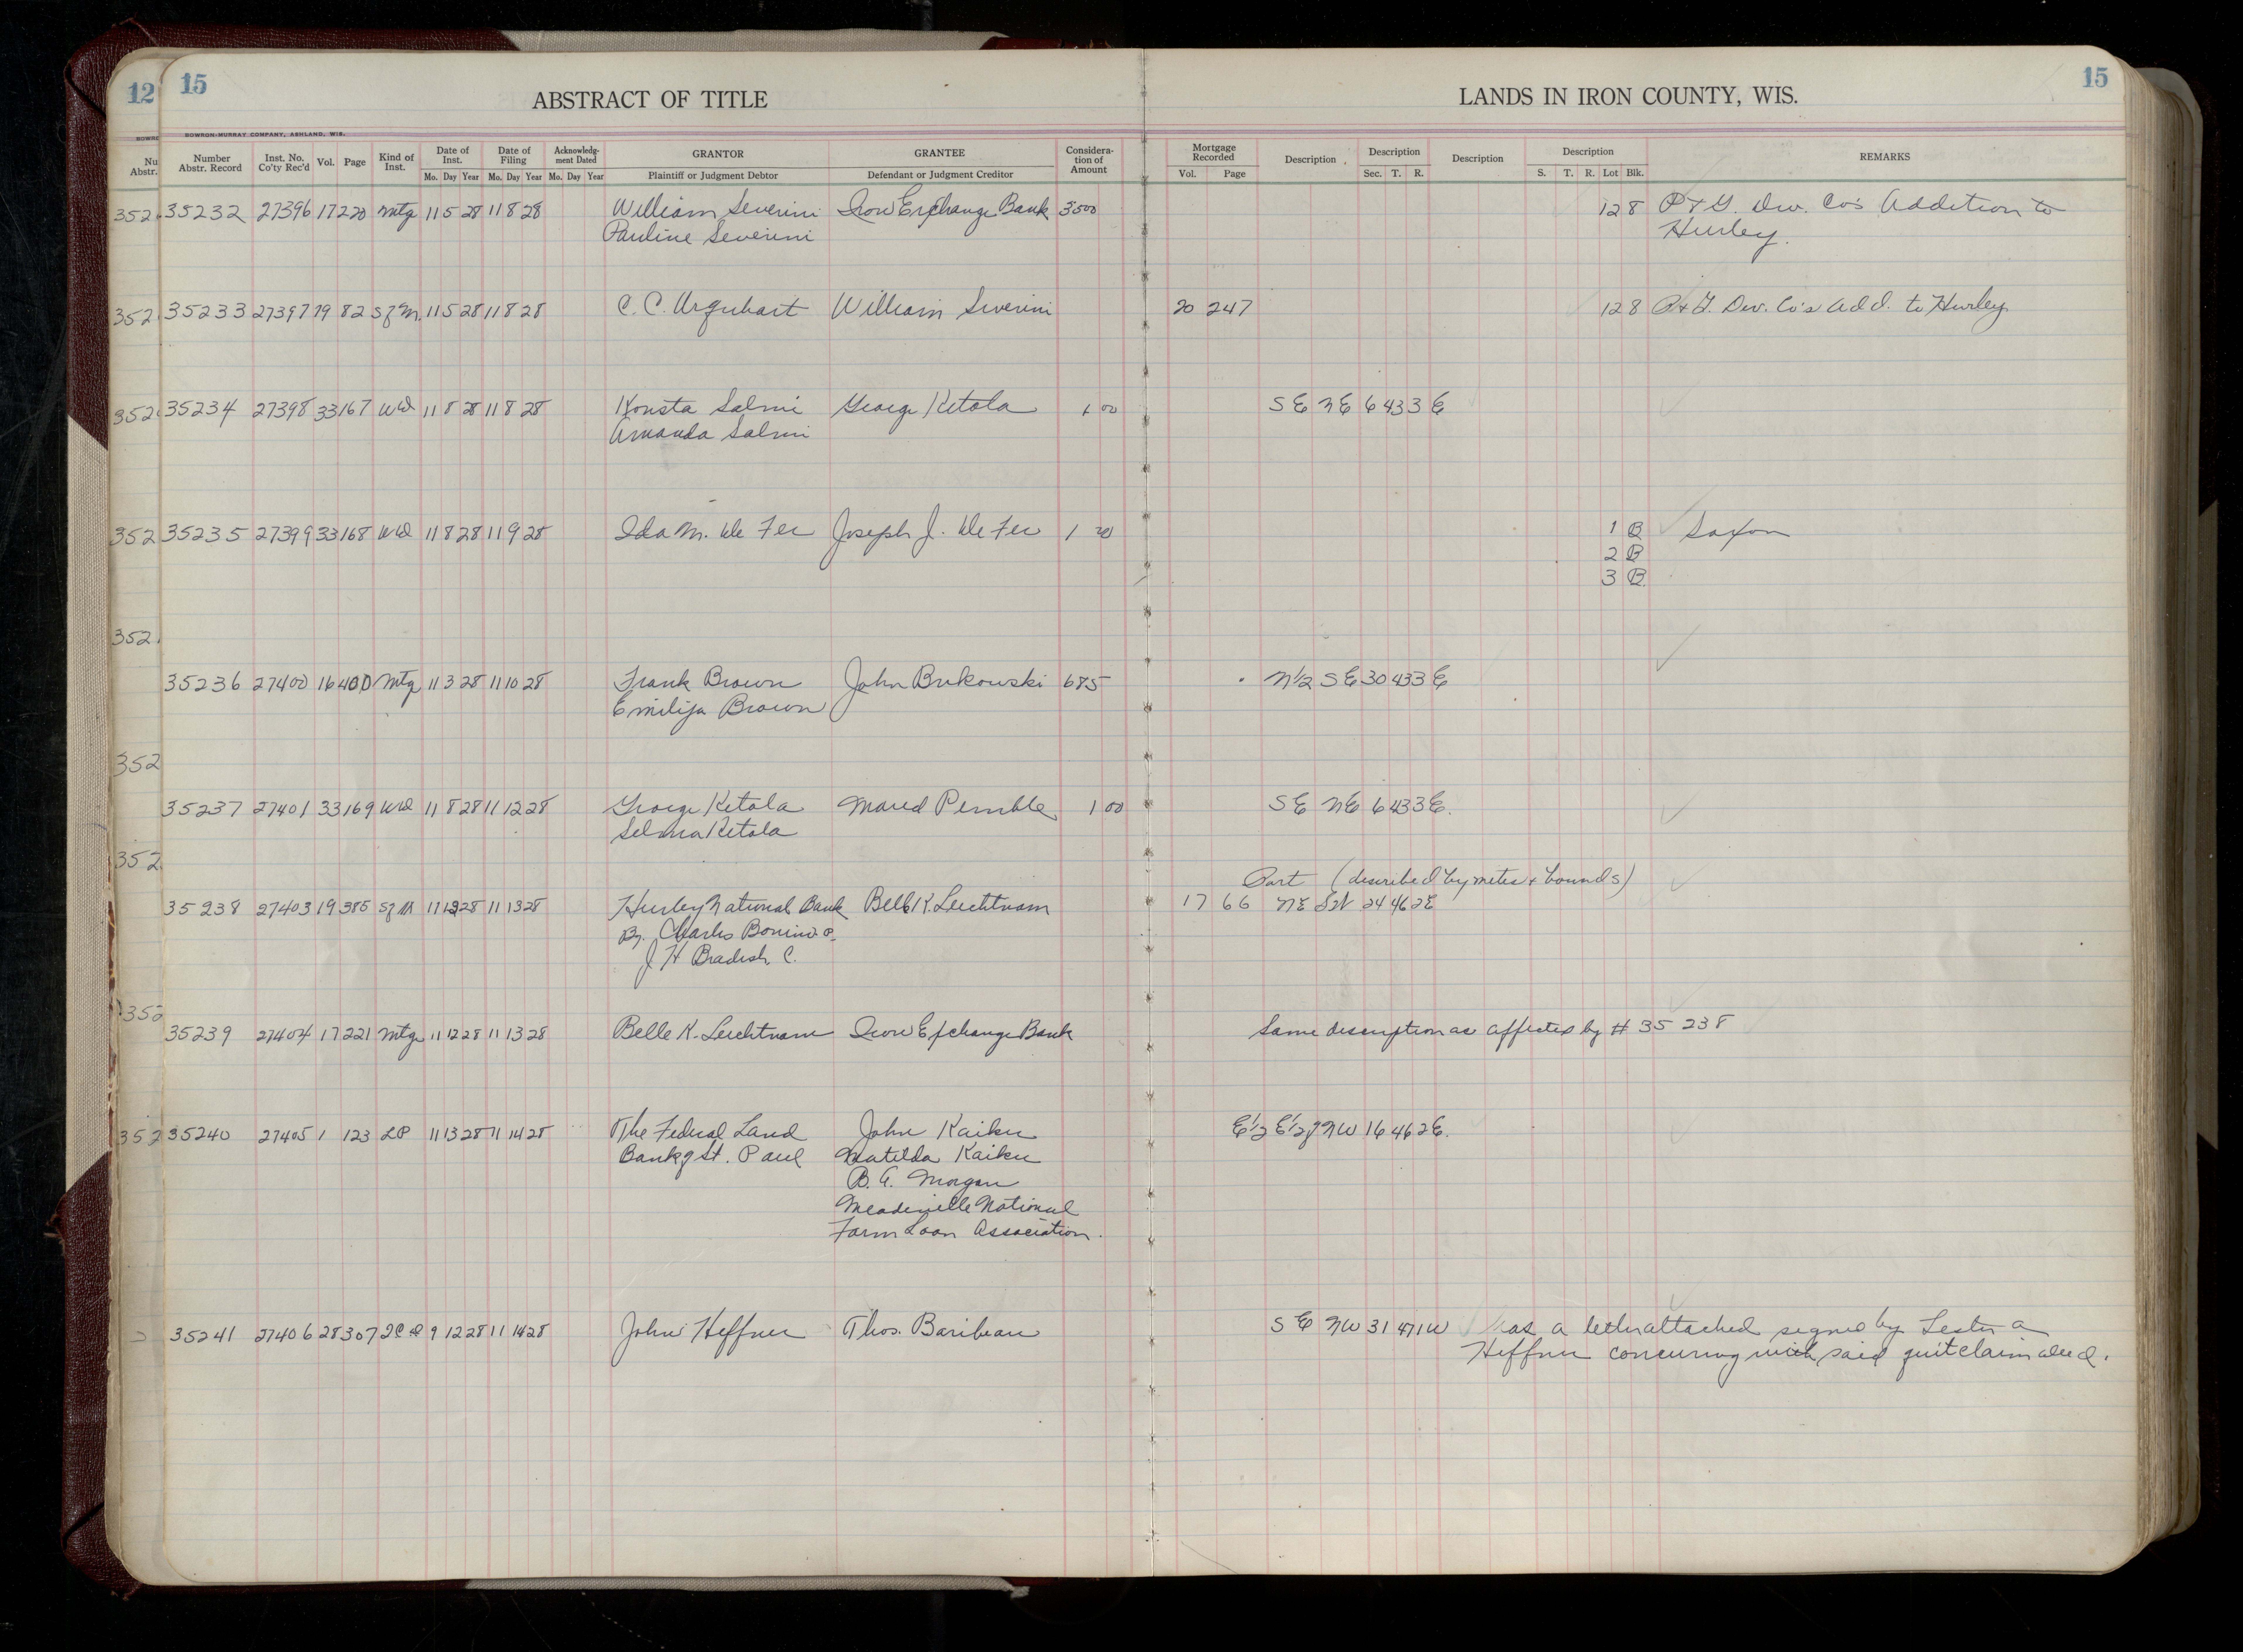 12 15
ABSTRACT OF TITLE
LANDS IN IRON COUNTY, WIS.
15
BOWRON-MURRAY COMPANY, ASHLAND, WIS.
Number Abstr. Record Inst. No. Co'ty Rec'd Vol. Page Kind of Inst. Date of Inst. Date of Filing Acknowledg- ment Dated GRANTOR GRANTEE Considera- tion of Amount Mortgage Recorded Description Description Description Description REMARKS
Mo. Day Year Mo. Day Year Mo. Day Year Plaintiff or Judgment Debtor Defendant or Judgment Creditor Vol. Page Sec. T. R. S. T. R. Lot Blk.
35232 27396 17 220 Mtg 11 5 28 11 8 28 William Severini Iron Exchange Bank 3500 12 8 P & G. Dev. Co's Addition to
Pauline Severini Hurley.
35233 27397 19 82 Sf M. 11 5 28 11 8 28 C. C. Urquhart William Severini 20 247 12 8 P & G. Dev. Co's Add. to Hurley
35234 27398 33 167 WD 11 8 28 11 8 28 Konsta Salmi George Ketola 1 00 SE NE 6 43 3 E
Amanda Salmi
35235 27399 33 168 WD 11 8 28 11 9 28 Ida M. De Fer Joseph J. De Fer 1 00 1 B Saxon
2 B
3 B.
35236 27400 16 400 Mtg 11 3 28 11 10 28 Frank Brown John Bukowski 685 N 1/2 SE 30 43 3 E
Emilija Brown
35237 27401 33 169 WD 11 8 28 11 12 28 George Ketola Maud Pemble 1 00 SE NE 6 43 3 E.
Selma Ketola
Part (described by metes & bounds)
35238 27403 19 385 Sf M 11 28 11 13 28 Hurley National Bank Belle K. Leichtnam 17 66 NE SW 24 46 2E
By. Charles Bonino P.
J. H Bradish C.
35239 27404 17 221 Mtg 11 12 28 11 13 28 Belle K. Leichtnam Iron Exchange Bank Same description as affected by # 35 238
35240 27405 1 123 LP 11 13 28 11 14 28 The Federal Land John Kaiku E 1/2 E 1/2 of NW 16 46 2E.
Bank of St. Paul Matilda Kaiku
B. A. Morgan
Meadeville National
Farm Loan Association.
35241 27406 28 307 9 12 28 11 14 28 John Heffner Thos. Baribeau SE NW 31 47 1W Has a letter attached signed by Lester A
Heffner concurring with said quit claim deed.